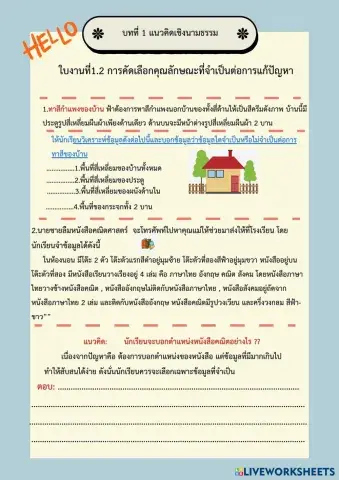 HELLO
บทที่ 1 แนวคิดเชิงนามธรรม
ใบงานที่1.2 การคัดเลือกคุณลักษณะที่จำเป็นต่อการแก้ปัญหา
1.ทาสีกำแพงของบ้าน ฟ้าต้องการทาสีกำแพงนอกบ้านของทั้งสี่ด้านให้เป็นสีครีมดังภาพ บ้านนี้มี
ประตูรูปสี่เหลี่ยมผืนผ้าเพียงด้านเดียว ด้านบนจะมีหน้าต่างรูปสี่เหลี่ยมผืนผ้า 2 บาน
ให้นักเรียนวิเคราะห์ข้อมูลดังต่อไปนี้และบอกข้อมูลว่าข้อมูลใดจำเป็นหรือไม่จำเป็นต่อการ
ทาสีของบ้าน
................1.พื้นที่สี่เหลี่ยมของบ้านทั้งหมด
................2.พื้นที่สี่เหลี่ยมของประตู
................3.พื้นที่สี่เหลี่ยมของผนังด้านใน
................4.พื้นที่ของกระจกทั้ง 2 บาน
2.นายชายลืมหนังสือคณิตศาสตร์ จะโทรศัพท์ไปหาคุณแม่ให้ช่วยมาส่งให้ที่โรงเรียน โดย
นักเรียนจำข้อมูลได้ดังนี้
ในห้องนอน มีโต๊ะ 2 ตัว โต๊ะตัวแรกสีดำอยู่มุมซ้าย โต๊ะตัวที่สองสีฟ้าอยู่มุมขวา หนังสืออยู่บน
โต๊ะตัวที่สอง มีหนังสือเรียนวางเรียงอยู่ 4 เล่ม คือ ภาษาไทย อังกฤษ คณิต สังคม โดยหนังสือภาษา
ไทยวางข้างหนังสือคณิต , หนังสืออังกฤษไม่ติดกับหนังสือภาษาไทย , หนังสือสังคมอยู่ถัดจาก
หนังสือภาษาไทย 2 เล่ม และติดกับหนังสืออังกฤษ หนังสือคณิตมีรูปวงเวียน และครึ่งวงกลม สีฟ้า-
ขาว""
แนวคิด: นักเรียนจะบอกตำแหน่งหนังสือคณิตอย่างไร ??
เนื่องจากปัญหาคือ ต้องการบอกตำแหน่งของหนังสือ แต่ข้อมูลที่มีมากเกินไป
ทำให้สับสนได้ง่าย ดังนั้นนักเรียนควรจะเลือกเฉพาะข้อมูลที่จำเป็น
ตอบ: ................................................................
LIVEWORKSHEETS